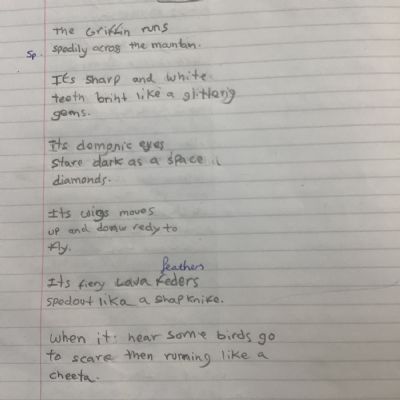 The Griffin runs
Sp. spedily acros the mountan.
Its sharp and white
teeth briht like a glitterig
gems.
Its demonic eyes
stare dark as a space
diamonds.
Its wigs moves
up and donw redy to
fly.
feathers
Its fiery Lava feders
spedout lika a shap knike.
when it hear some birds go
to scare then running like a
cheeta.